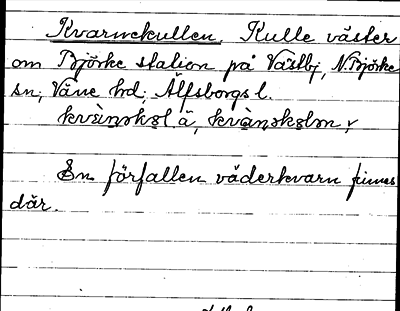 Kvarnekullen. Kulle väster
om Björke station på Västbj, N. Björke
sn, Väne hd, Älfsborgs l.
En förfallen väderkvarn finnes
där.